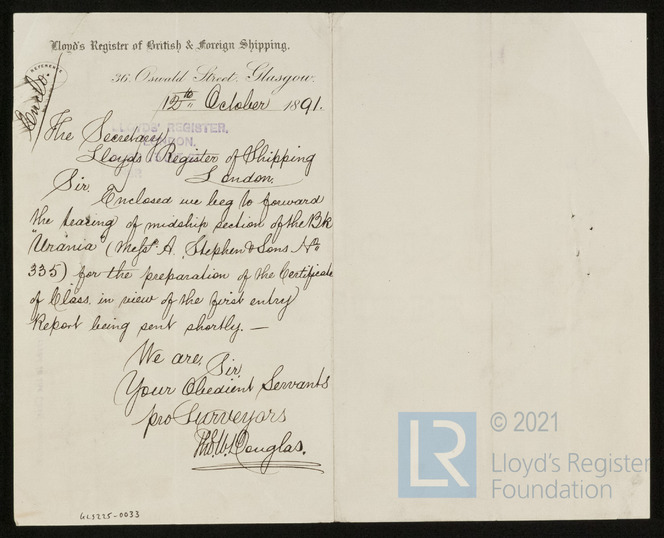 Lloyd's Register of British & Foreign Shipping.
REFERENCE
Enclo.
36, Oswald Street, Glasgow,
12th October 1891.
LLOYDS' REGISTER,
LONDON.
The Secretary
Lloyds Register of Shipping
London.
Sir,
Enclosed we beg to forward
the tracing of midship section of the Bk
"Urania" (Messrs. A. Stephen & Sons No
335) for the preparation of the Certificate
of Class, in view of the first entry
Report being sent shortly. —
We are, Sir,
Your Obedient Servants
pro Surveyors
Thos. W. Douglas.
GLS225-0033
LR
© 2021
Lloyd's Register
Foundation